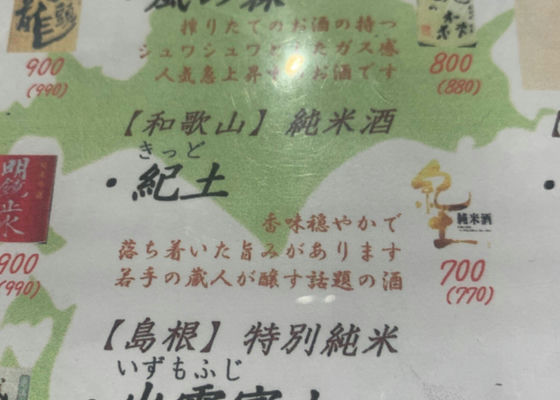 搾りたてのお酒の持つ
シュワシュワと
ガス感
人気急上昇
お酒です
900
(990)
800
(880)
【和歌山】純米酒
きっと
・紀土
香味穏やかで
落ち着いた旨みがあります
若手の蔵人が醸す話題の酒
紀土
純米酒
700
(770)
900
(990)
【島根】特別純米
いずもふじ